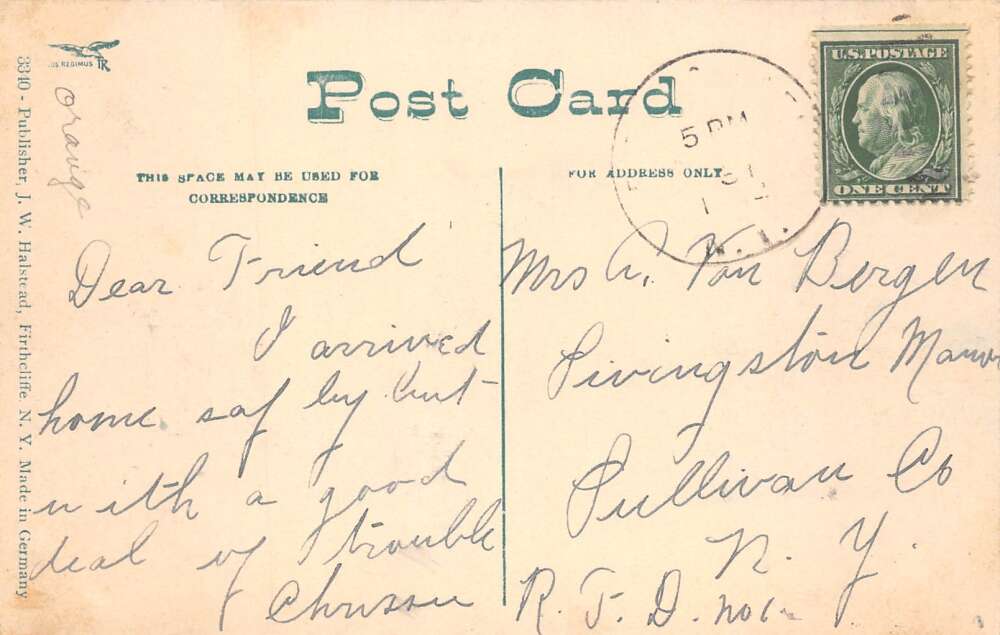 TR
Orange
3340 - Publisher, J. W. Halstead, Firthcliffe, N. Y. Made in Germany
Post Card
THIS SPACE MAY BE USED FOR
CORRESPONDENCE
FOR ADDRESS ONLY
5 PM
N. Y.
U.S. POSTAGE
ONE CENT
Dear Friend
I arrived
home saf by but
with a good
deal of trouble
Mrs A. Van Bergen
Livingston Manor
Sullivan Co
N. Y.
R. F. D. no 1